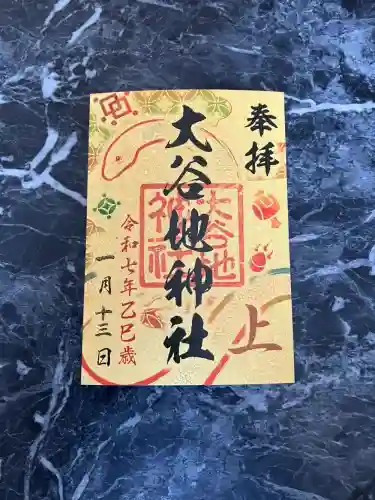 奉拝
大谷地神社
大谷地
神社
上
令和七年乙巳歳
一月十三日